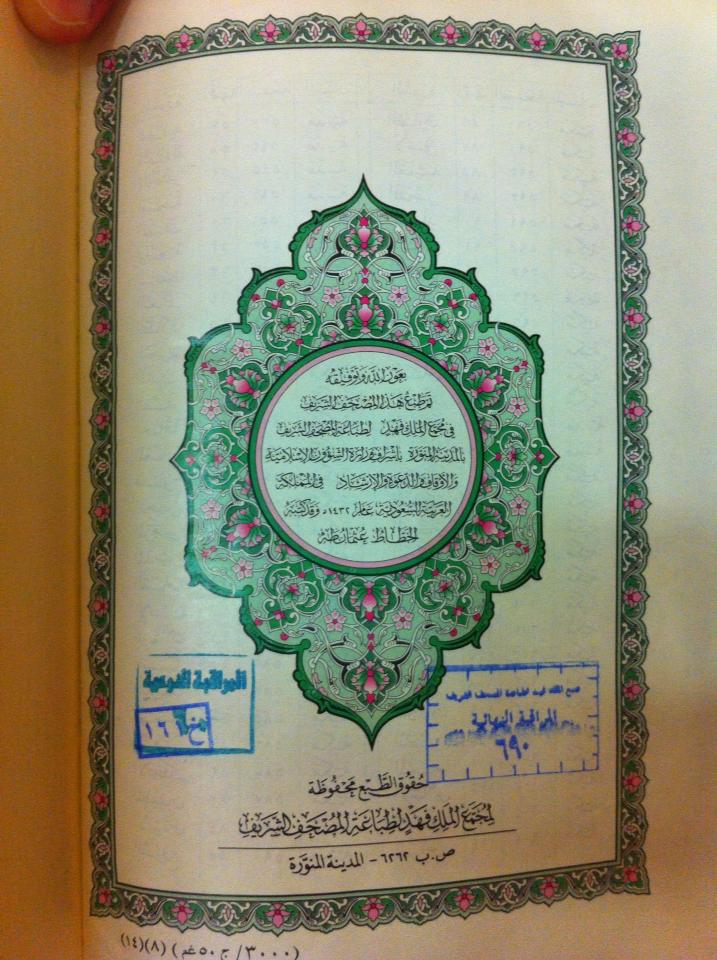 بعون الله وتوفيقه
تم طبع هذا المصحف الشريف
في مجمع الملك فهد لطباعة المصحف الشريف
بالمدينة المنورة بإشراف وزارة الشؤون الإسلامية
والأوقاف والدعوة والإرشاد في المملكة
العربية السعودية عام ١٤٣٢ه وقد كتبه
الخطاط عثمان طه
المراقبة النوعية
خ ١٦١
مجمع الملك فهد لطباعة المصحف الشريف
المراقبة النهائية
٦٩٠
حقوق الطبع محفوظة
لمجمع الملك فهد لطباعة المصحف الشريف
ص.ب ٦٢٦٢ - المدينة المنورة
(٣٠٠٠/ج ٥٠ غم) (٨)(١٤)